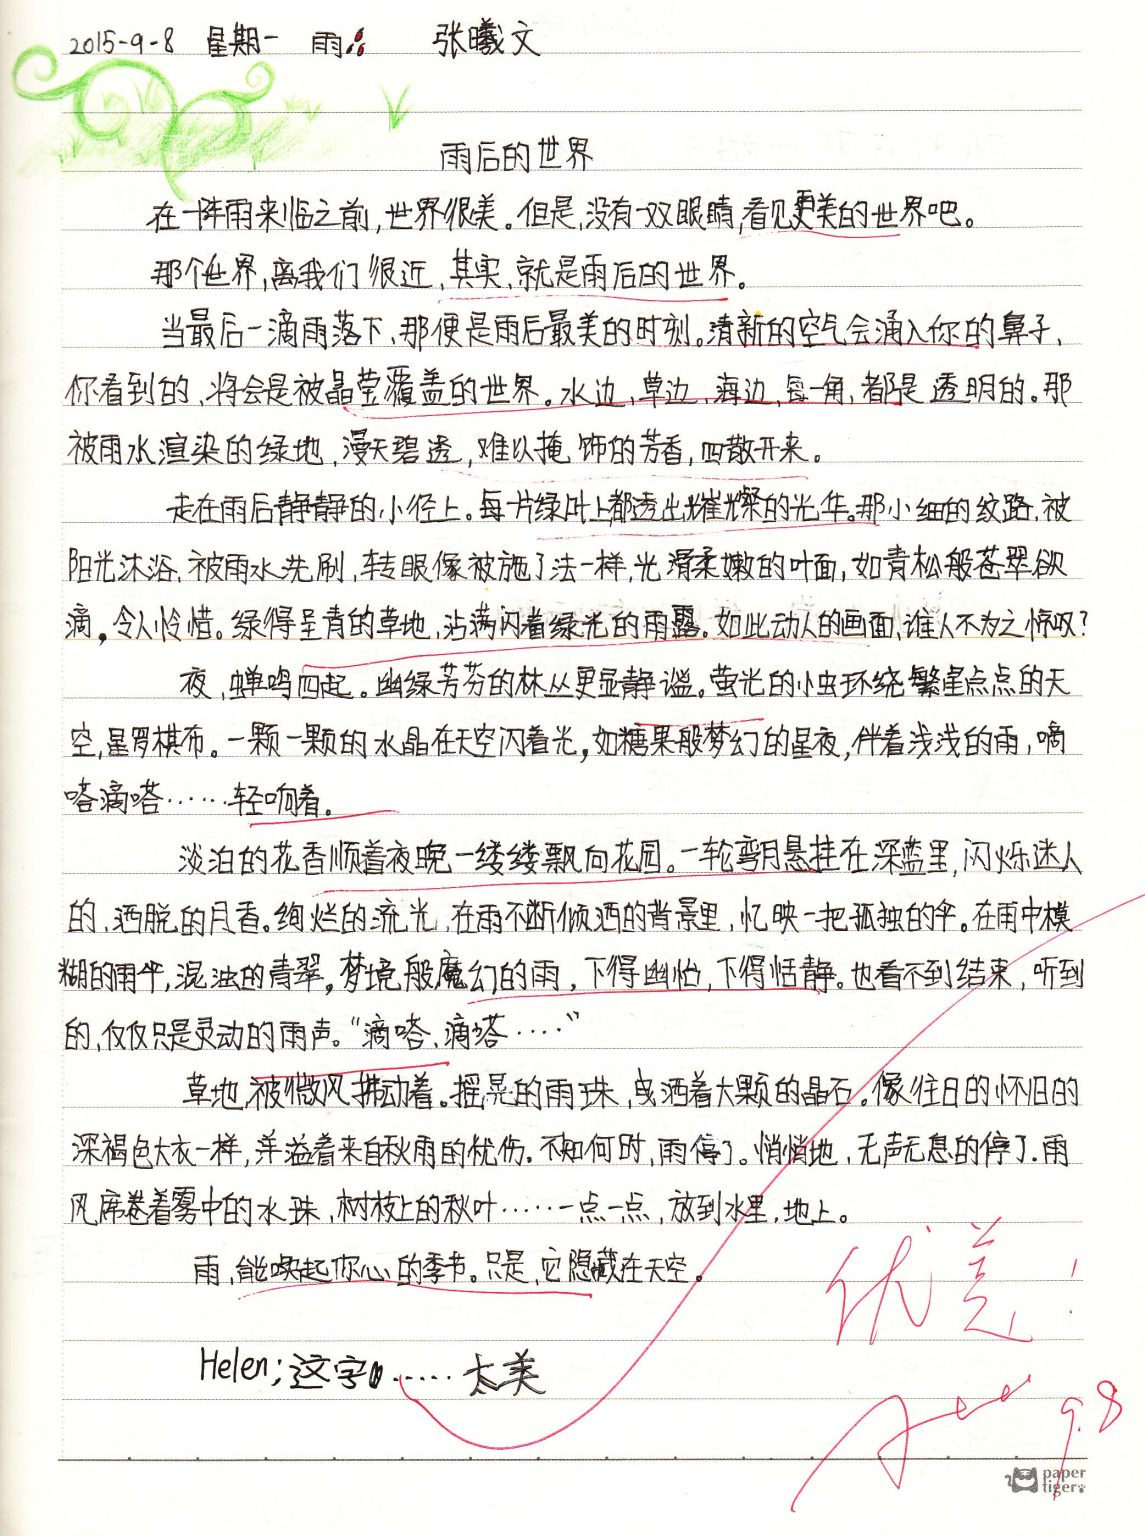 2015-9-8 星期一 雨 张曦文
雨后的世界
在一阵雨来临之前,世界很美。但是,没有一双眼睛,看见更美的世界吧。
那个世界,离我们很近,其实,就是雨后的世界。
当最后一滴雨落下,那便是雨后最美的时刻。清新的空气会涌入你的鼻子,
你看到的,将会是被晶莹覆盖的世界。水边,草边,海边,每一角,都是透明的。那
被雨水渲染的绿地,漫天碧透,难以掩饰的芳香,四散开来。
走在雨后静静的小径上。每片绿叶上都透出璀璨的光华。那小细的纹路,被
阳光沐浴,被雨水洗刷,转眼像被施了法一样,光滑柔嫩的叶面,如青松般苍翠欲
滴,令人怜惜。绿得呈青的草地,沾满闪着绿光的雨露。如此动人的画面,谁人不为之惊叹?
夜,蝉鸣四起。幽绿芳芬的林丛更显静谧。萤光的小虫环绕繁星点点的天
空,星罗棋布。一颗一颗的水晶在天空闪着光,如糖果般梦幻的星夜,伴着浅浅的雨,嘀
嗒滴嗒……轻响着。
淡泊的花香顺着夜晚一缕缕飘向花园。一轮弯月悬挂在深蓝里,闪烁迷人
的,洒脱的月香。绚烂的流光,在雨不断倾洒的背景里,忆映一把孤独的伞。在雨中模
糊的雨伞,混浊的青翠,梦境般魔幻的雨,下得幽怡,下得恬静。也看不到结束,听到
的,仅仅只是灵动的雨声。“滴嗒,滴嗒……”
草地,被微风拂动着。摇晃的雨珠,曳洒着大颗的晶石。像往日的怀旧的
深褐色大衣一样,洋溢着来自秋雨的忧伤。不知何时,雨停了。悄悄地,无声无息的停了。雨
风席卷着雾中的水珠,树枝上的秋叶……一点一点,放到水里,地上。
雨,能唤起你心的季节。只是,它隐藏在天空。
优美!
Helen;这字……太美
9.8
paper
tiger